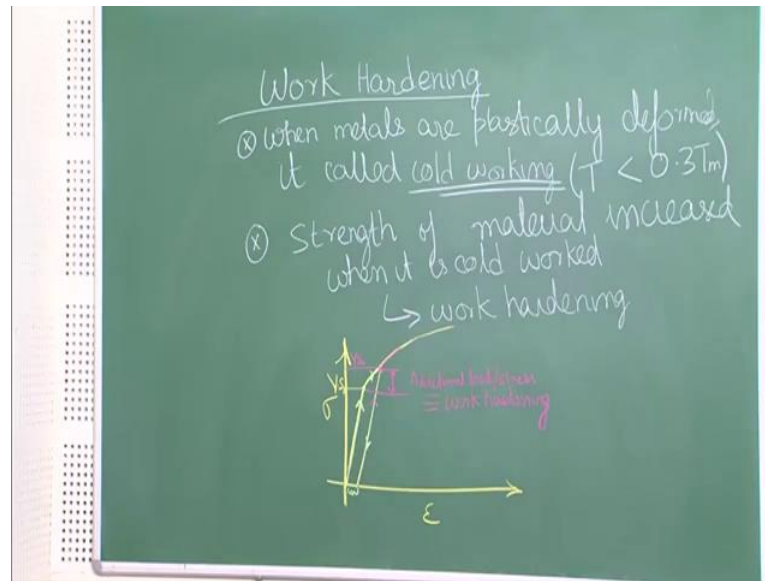 Work Hardening
ⓧ when metals are plastically deformed,
it called cold working (T < 0.3Tm)
ⓧ Strength of material increased
when it is cold worked
↳ work hardening
YS
YS
Additional load/stress
= work hardening
σ
ε